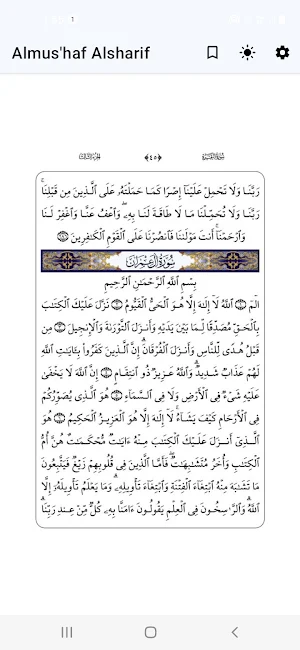 Almus'haf Alsharif
﴿٤٥﴾
رَبَّنَا وَلَا تَحْمِلْ عَلَيْنَا إِصْرًا كَمَا حَمَلْتَهُۥ عَلَى ٱلَّذِينَ مِن قَبْلِنَا ۚ
رَبَّنَا وَلَا تُحَمِّلْنَا مَا لَا طَاقَةَ لَنَا بِهِۦ ۖ وَٱعْفُ عَنَّا وَٱغْفِرْ لَنَا
وَٱرْحَمْنَآ ۚ أَنتَ مَوْلَىٰنَا فَٱنصُرْنَا عَلَى ٱلْقَوْمِ ٱلْكَٰفِرِينَ
سُورَةُ آلِ عِمْرَانَ
بِسْمِ ٱللَّهِ ٱلرَّحْمَٰنِ ٱلرَّحِيمِ
الٓمٓ ۝ ٱللَّهُ لَآ إِلَٰهَ إِلَّا هُوَ ٱلْحَىُّ ٱلْقَيُّومُ ۝ نَزَّلَ عَلَيْكَ ٱلْكِتَٰبَ
بِٱلْحَقِّ مُصَدِّقًا لِّمَا بَيْنَ يَدَيْهِ وَأَنزَلَ ٱلتَّوْرَىٰةَ وَٱلْإِنجِيلَ ۝ مِن
قَبْلُ هُدًى لِّلنَّاسِ وَأَنزَلَ ٱلْفُرْقَانَ ۗ إِنَّ ٱلَّذِينَ كَفَرُوا۟ بِـَٔايَٰتِ ٱللَّهِ
لَهُمْ عَذَابٌ شَدِيدٌ ۗ وَٱللَّهُ عَزِيزٌ ذُو ٱنتِقَامٍ ۝ إِنَّ ٱللَّهَ لَا يَخْفَىٰ
عَلَيْهِ شَىْءٌ فِى ٱلْأَرْضِ وَلَا فِى ٱلسَّمَآءِ ۝ هُوَ ٱلَّذِى يُصَوِّرُكُمْ
فِى ٱلْأَرْحَامِ كَيْفَ يَشَآءُ ۚ لَآ إِلَٰهَ إِلَّا هُوَ ٱلْعَزِيزُ ٱلْحَكِيمُ ۝ هُوَ
ٱلَّذِىٓ أَنزَلَ عَلَيْكَ ٱلْكِتَٰبَ مِنْهُ ءَايَٰتٌ مُّحْكَمَٰتٌ هُنَّ أُمُّ
ٱلْكِتَٰبِ وَأُخَرُ مُتَشَٰبِهَٰتٌ ۖ فَأَمَّا ٱلَّذِينَ فِى قُلُوبِهِمْ زَيْغٌ فَيَتَّبِعُونَ
مَا تَشَٰبَهَ مِنْهُ ٱبْتِغَآءَ ٱلْفِتْنَةِ وَٱبْتِغَآءَ تَأْوِيلِهِۦ ۗ وَمَا يَعْلَمُ تَأْوِيلَهُۥٓ إِلَّا
ٱللَّهُ ۗ وَٱلرَّٰسِخُونَ فِى ٱلْعِلْمِ يَقُولُونَ ءَامَنَّا بِهِۦ كُلٌّ مِّنْ عِندِ رَبِّنَا ۗ